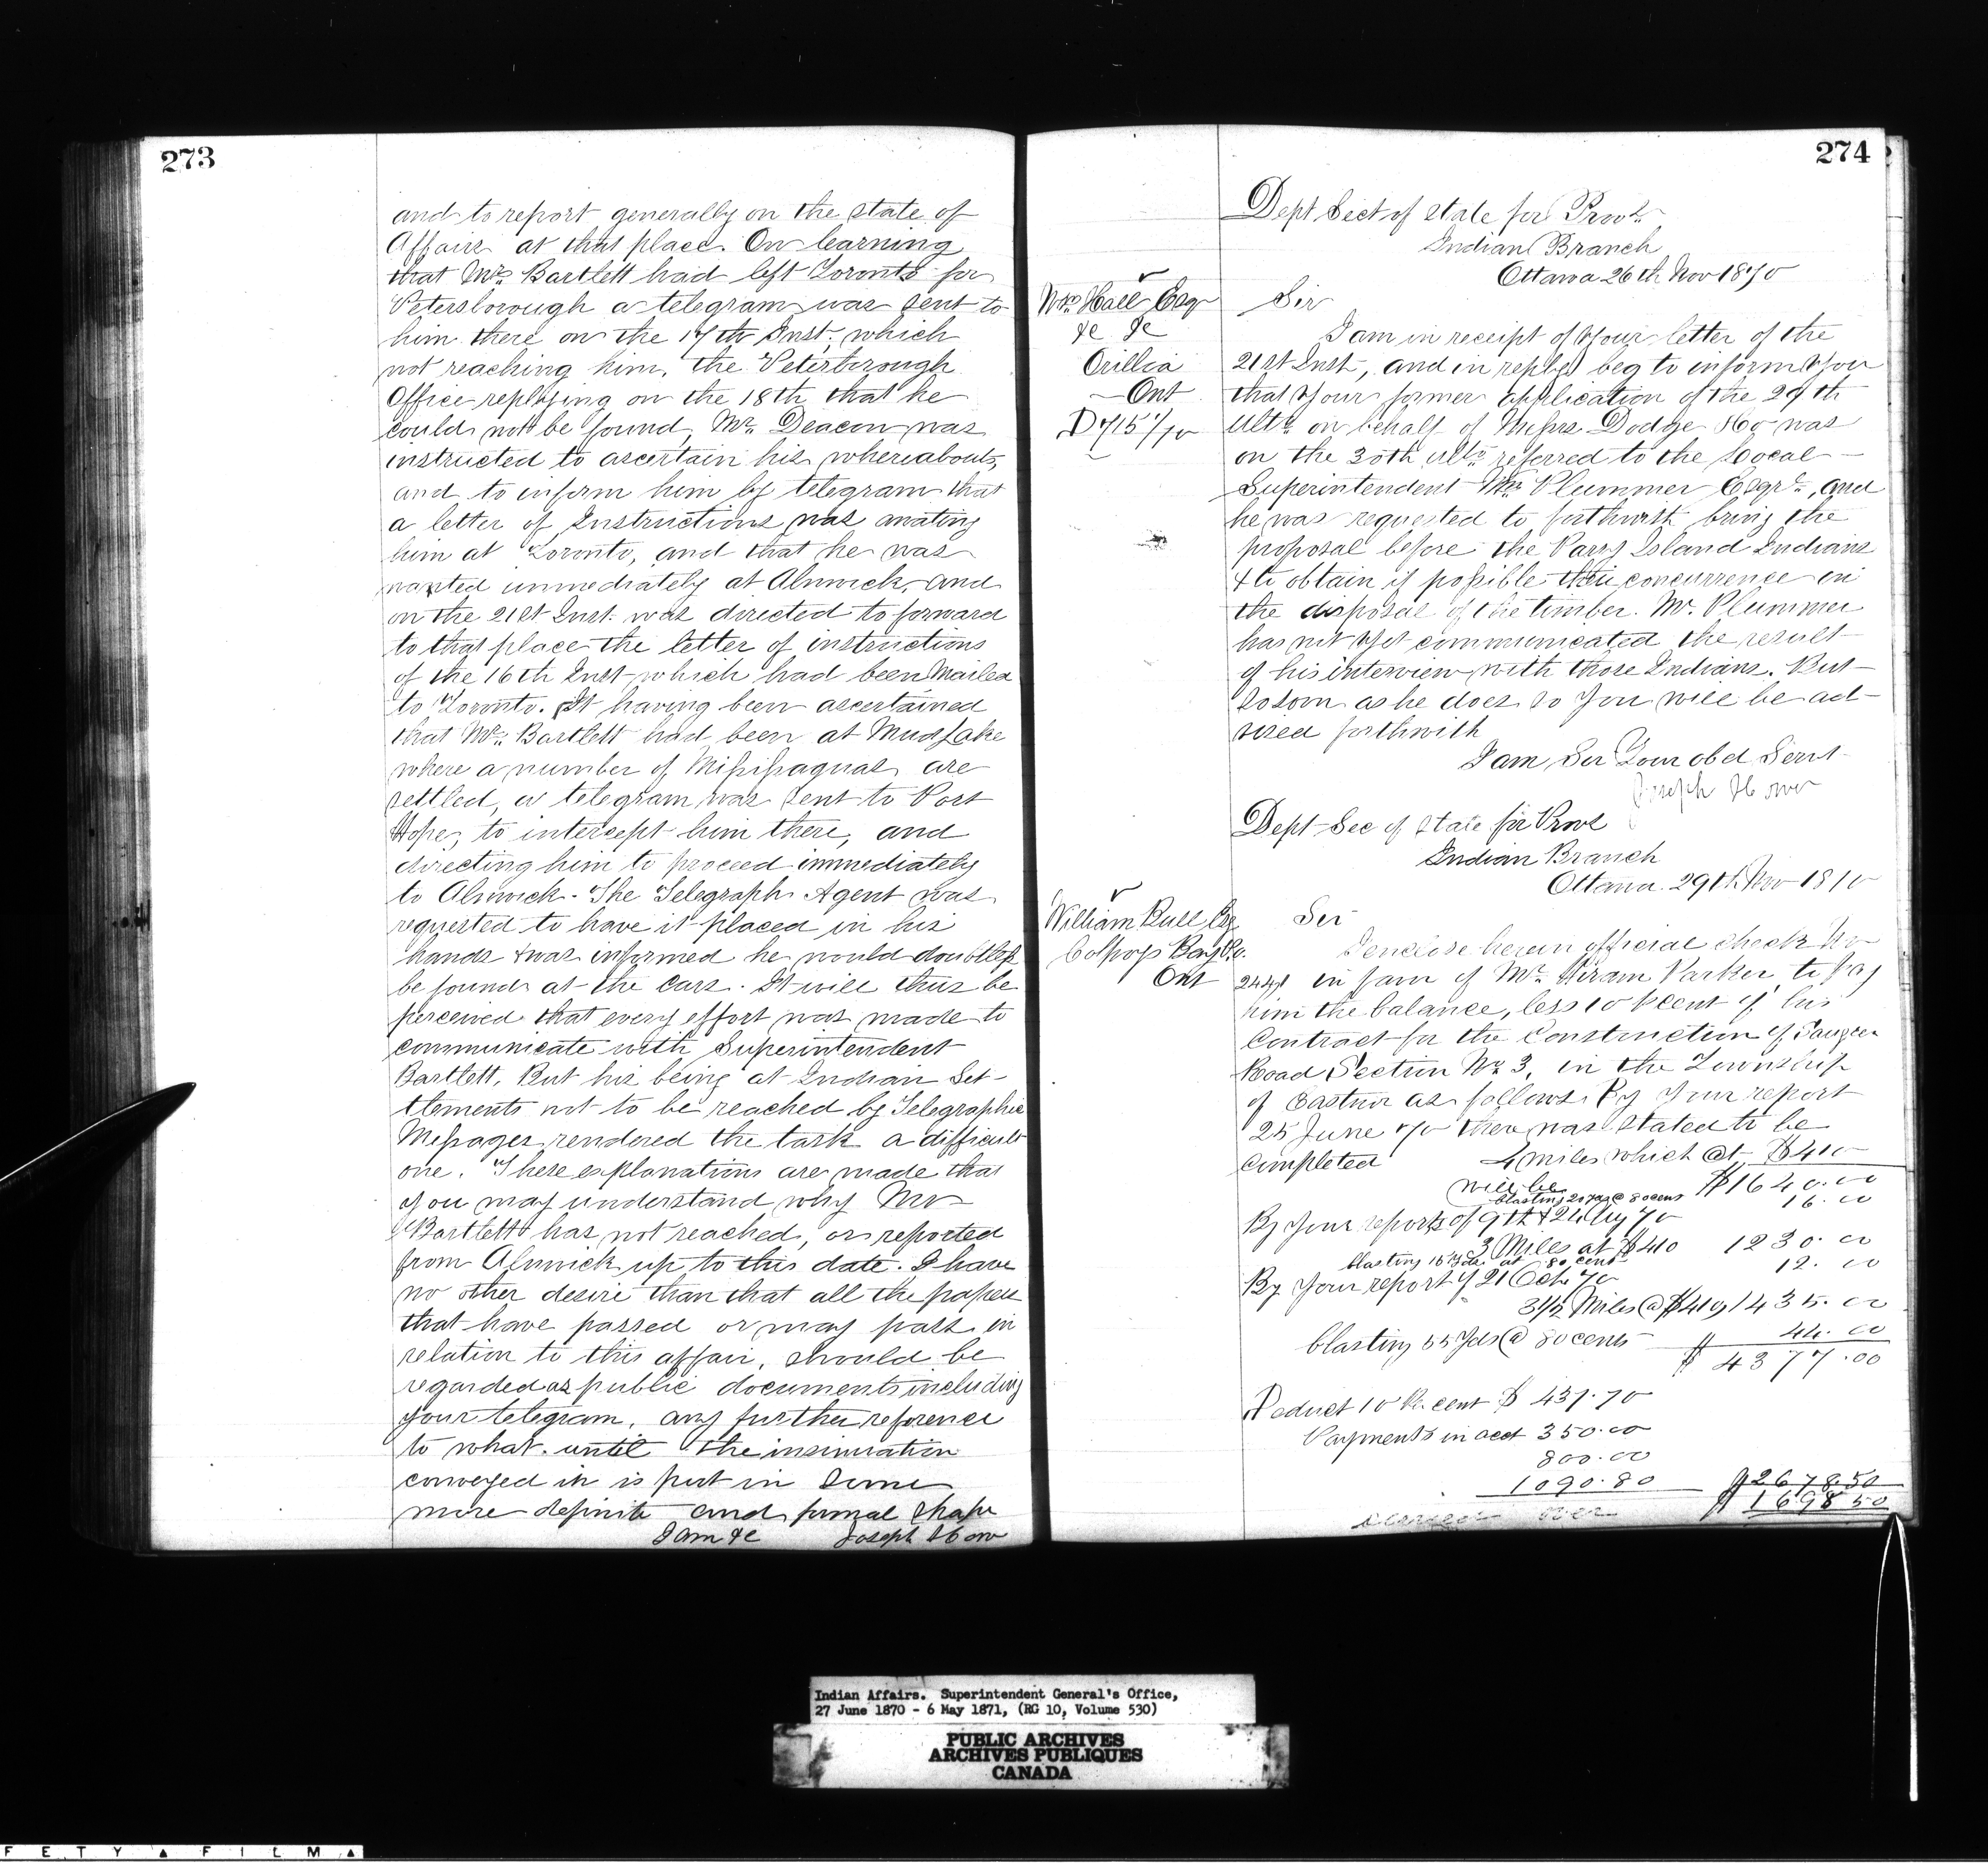 273
and to report generally on the state of
Affairs at that place. On learning
that Mr. Bartlett had left Toronto for
Peterborough a telegram was sent to
him there on the 17th Inst, which
not reaching him, the Peterborough
Office replying on the 18th that he
could not be found, Mr. Deacon was
instructed to ascertain his whereabouts,
and to inform him by telegram that
a letter of Instructions was awating
him at Toronto, and that he was
wanted immediately at Alnwick, and
on the 21st Inst. was directed to forward
to that place the letter of instructions
of the 16th Inst which had been Mailed
to Toronto. It having been ascertained
that Mr. Bartlett had been at Mud Lake
where a number of Missisaguas are
settled, a telegram was sent to Port
Hope, to intercept him there, and
directing him to proceed immediately
to Alnwick. The Telegraph Agent was
requested to have it placed in his
hands & was informed he would doubtless
be found at the Cars. It will thus be
perceived that every effort was made to
communicate with Superintendent
Bartlett. But his being at Indian Set-
tlements not to be reached by Telegraphic
Messages rendered the task a difficult
one. These explanations are made that
you may understand why Mr
Bartlett has not reached, or reported
from Alnwick up to this date. I have
no other desire than that all the papers
that have passed or may pass in
relation to this affair, should be
regarded as public documents including
your telegram, any further reference
to what until the insinuation
conveyed in is put in some
more definite and formal shape
I am &c Joseph Howe
274
Dept Sect of state for Provs.
Indian Branch
Ottawa 26th Nov 1870
Wm. Hall Esqr
&c &c
Orillia
Ont
D 715/70
Sir
I am in receipt of Your letter of the
21st Inst, and in reply beg to inform You
that Your former application of the 29th
Ulto. on behalf of Messrs Dodge & Co was
on the 30th ulto. referred to the Local
Superintendent Wm. Plummer Esqre., and
he was requested to forthwith bring the
proposal before the Parry Island Indians
& to obtain if possible their concurrence in
the disposal of the timber. Mr. Plummer
has not Yet communicated the result
of his interview with those Indians. But
so soon as he does so You will be ad-
vised forthwith
I am Sir Your obd Servt
Joseph Howe
Dept Sec of state for Provs
Indian Branch
Ottawa. 29th Nov 1870
William Bull Esq
Colpoys Bay P.O.
Ont
Sir
I enclose herein official check No
in favr of Mr. Hiram Parker, to pay
him the balance, less 10 P cent of his
Contract for the Construction of Saugeen
Road Section No. 3, in the Township
of Eastnor as follows. By Your report
25 June 70 there was stated to be
Completed 4 miles which @ $410
will be $1640.00
blasting 20 yds @ 80 cens 16.00
By Your reports of 9th & 24 Aug 70
3 Miles at $410 1230.00
blasting 15 Yds at 80 cens 12.00
By Your report of 21 Oct 70
3 1/2 Miles @ $410 1435.00
blasting 55 Yds @ 80 cents $ 44.00
$ 4377.00
Deduct 10 Pr. cent $ 437.70
Payments in acct 350.00
800.00
1090.80 $2678.50
$ 1698 50
carried over
Indian Affairs. Superintendent General's Office,
27 June 1870 - 6 May 1871, (RG 10, Volume 530)
PUBLIC ARCHIVES
ARCHIVES PUBLIQUES
CANADA
F E T Y ▲ F I L M ▲